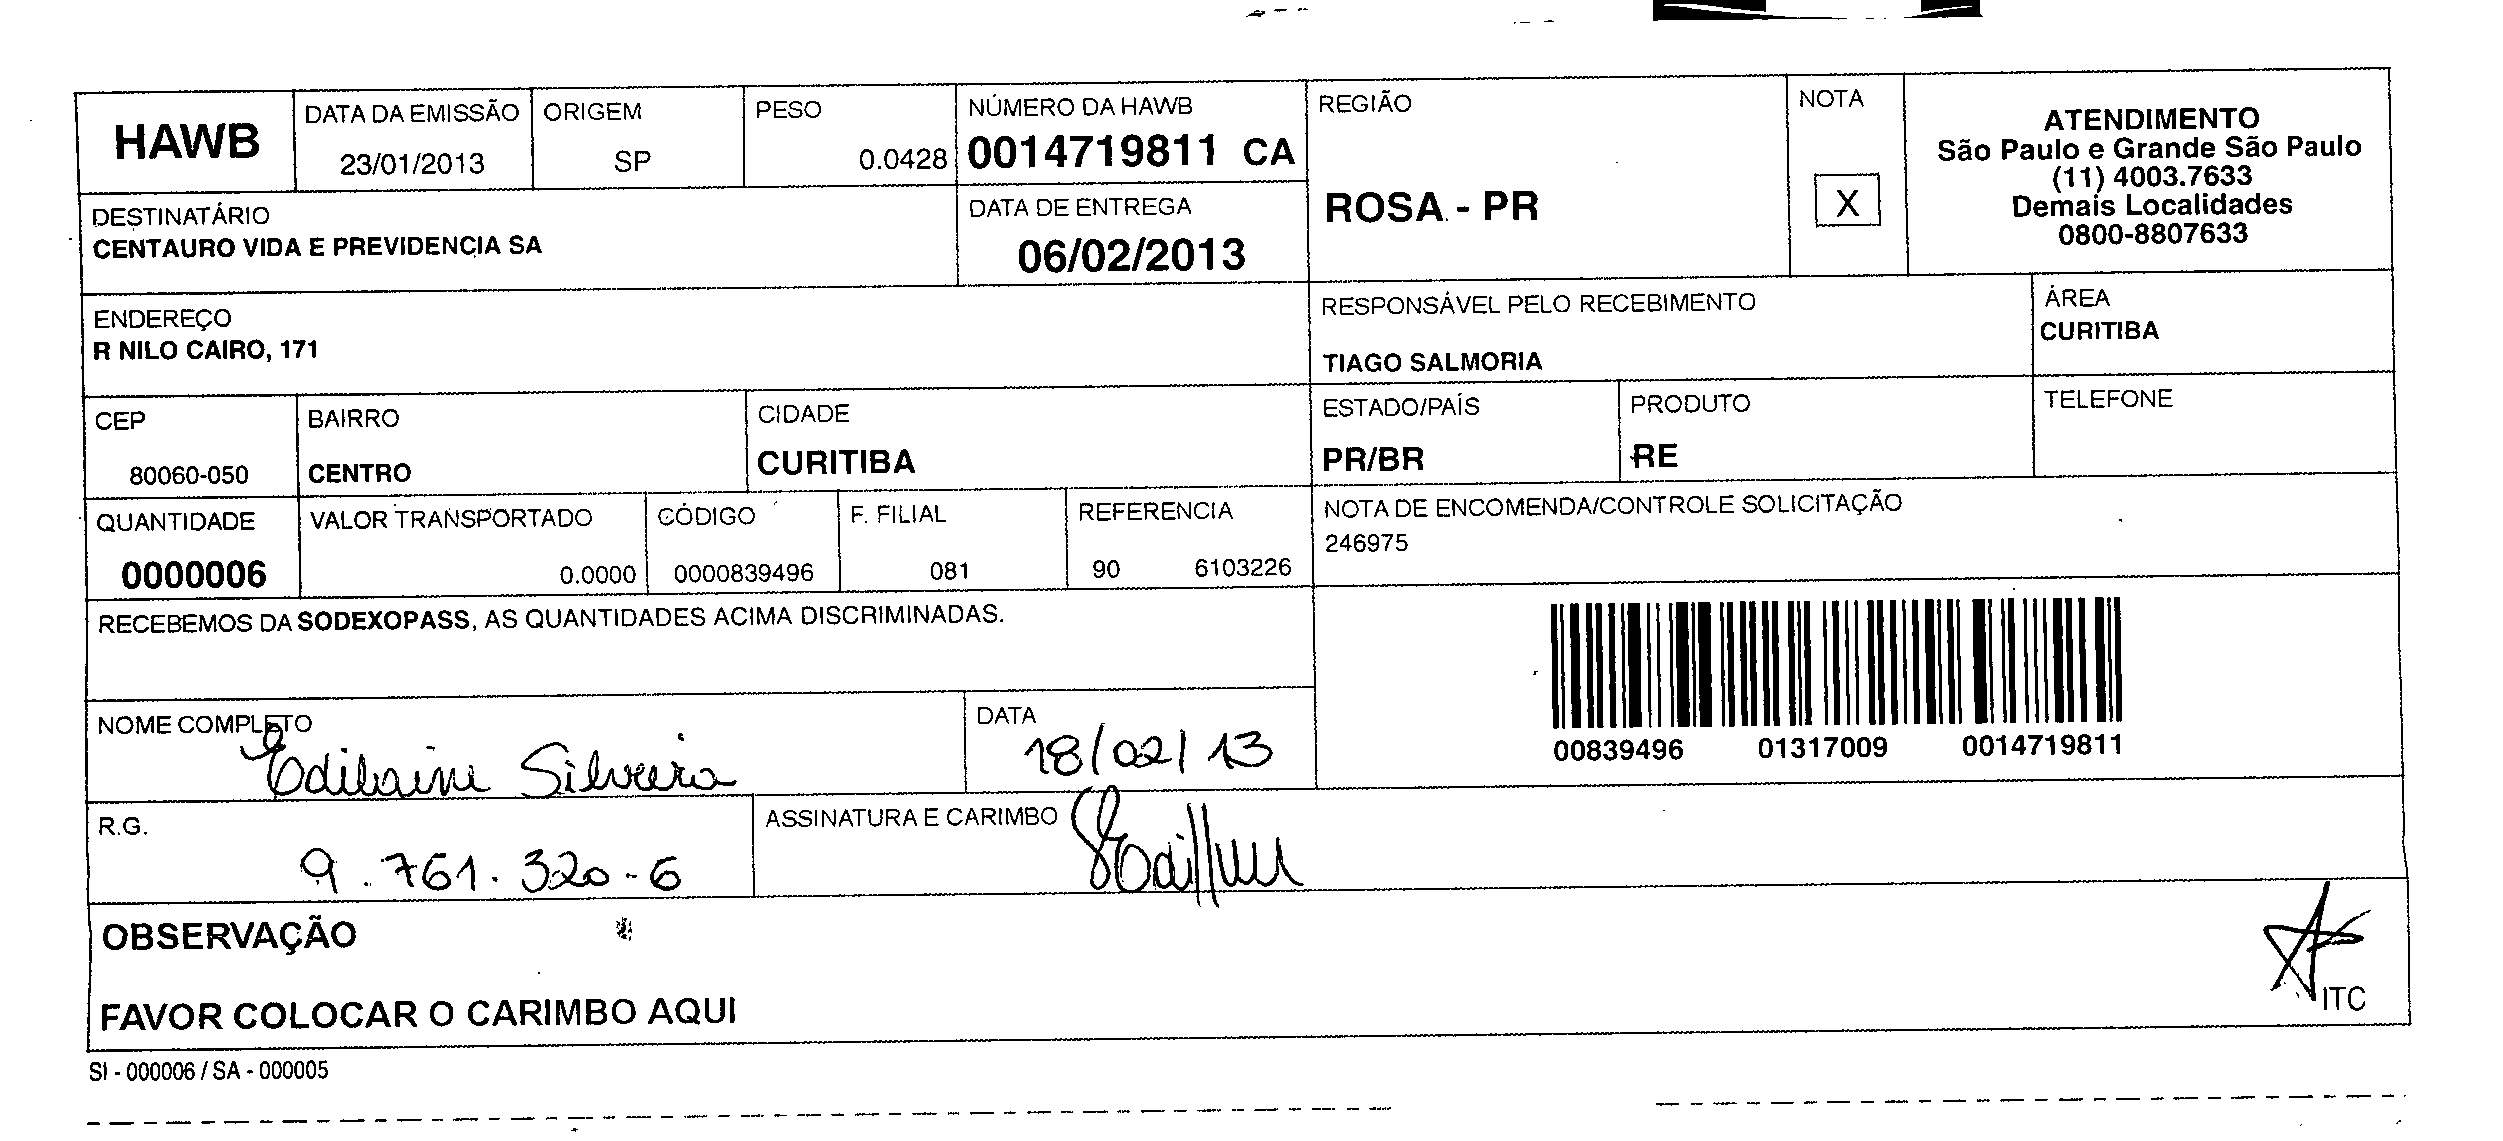 HAWB
DATA DA EMISSÃO
23/01/2013
ORIGEM
SP
PESO
0.0428
NÚMERO DA HAWB
0014719811 CA
REGIÃO
ROSA - PR
NOTA
X
ATENDIMENTO
São Paulo e Grande São Paulo
(11) 4003.7633
Demais Localidades
0800-8807633
DESTINATÁRIO
CENTAURO VIDA E PREVIDENCIA SA
DATA DE ENTREGA
06/02/2013
ENDEREÇO
R NILO CAIRO, 171
RESPONSÁVEL PELO RECEBIMENTO
TIAGO SALMORIA
ÁREA
CURITIBA
CEP
80060-050
BAIRRO
CENTRO
CIDADE
CURITIBA
ESTADO/PAÍS
PR/BR
PRODUTO
RE
TELEFONE
QUANTIDADE
0000006
VALOR TRANSPORTADO
0.0000
CÓDIGO
0000839496
F. FILIAL
081
REFERENCIA
90 6103226
NOTA DE ENCOMENDA/CONTROLE SOLICITAÇÃO
246975
RECEBEMOS DA SODEXOPASS, AS QUANTIDADES ACIMA DISCRIMINADAS.
00839496 01317009 0014719811
NOME COMPLETO
Edilaine Silveira
DATA
18/02/13
R.G.
9.761.320-6
ASSINATURA E CARIMBO
OBSERVAÇÃO
FAVOR COLOCAR O CARIMBO AQUI
ITC
SI - 000006 / SA - 000005